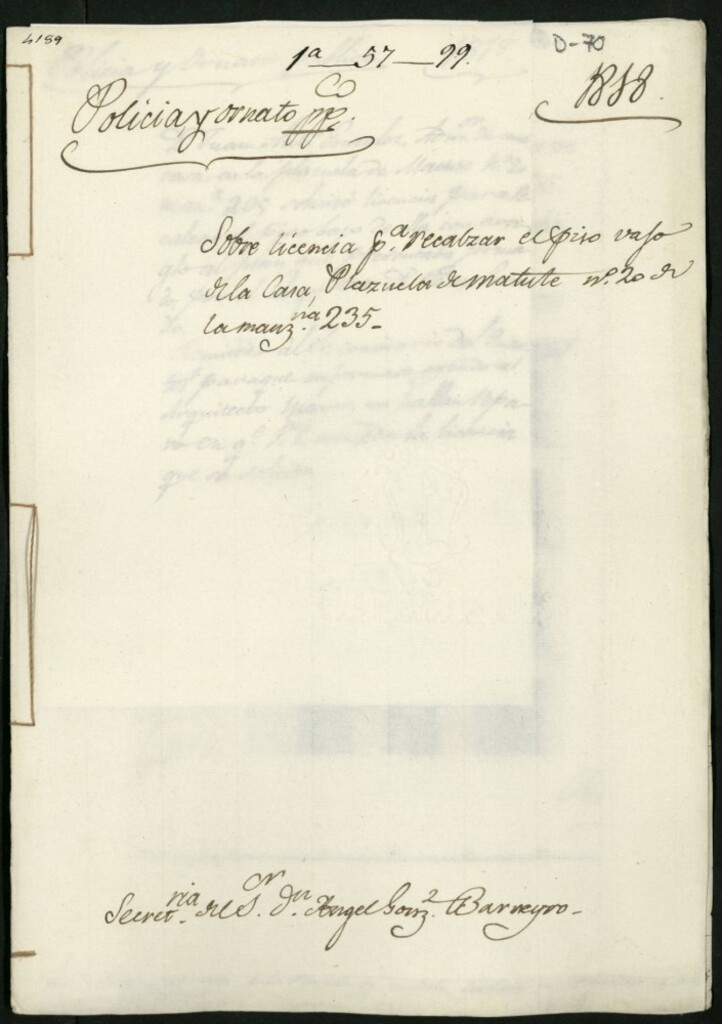 4189
1ª 57 99.
D-70
1818.
Policia y ornato ppco.
Sobre licencia pª. recalzar el piso vajo
de la Casa, Plazuela de Matute nº. 20 de
la manzna. 235-
Secretria. del Sr. Dn. Angel Gonzz. Barreyro-